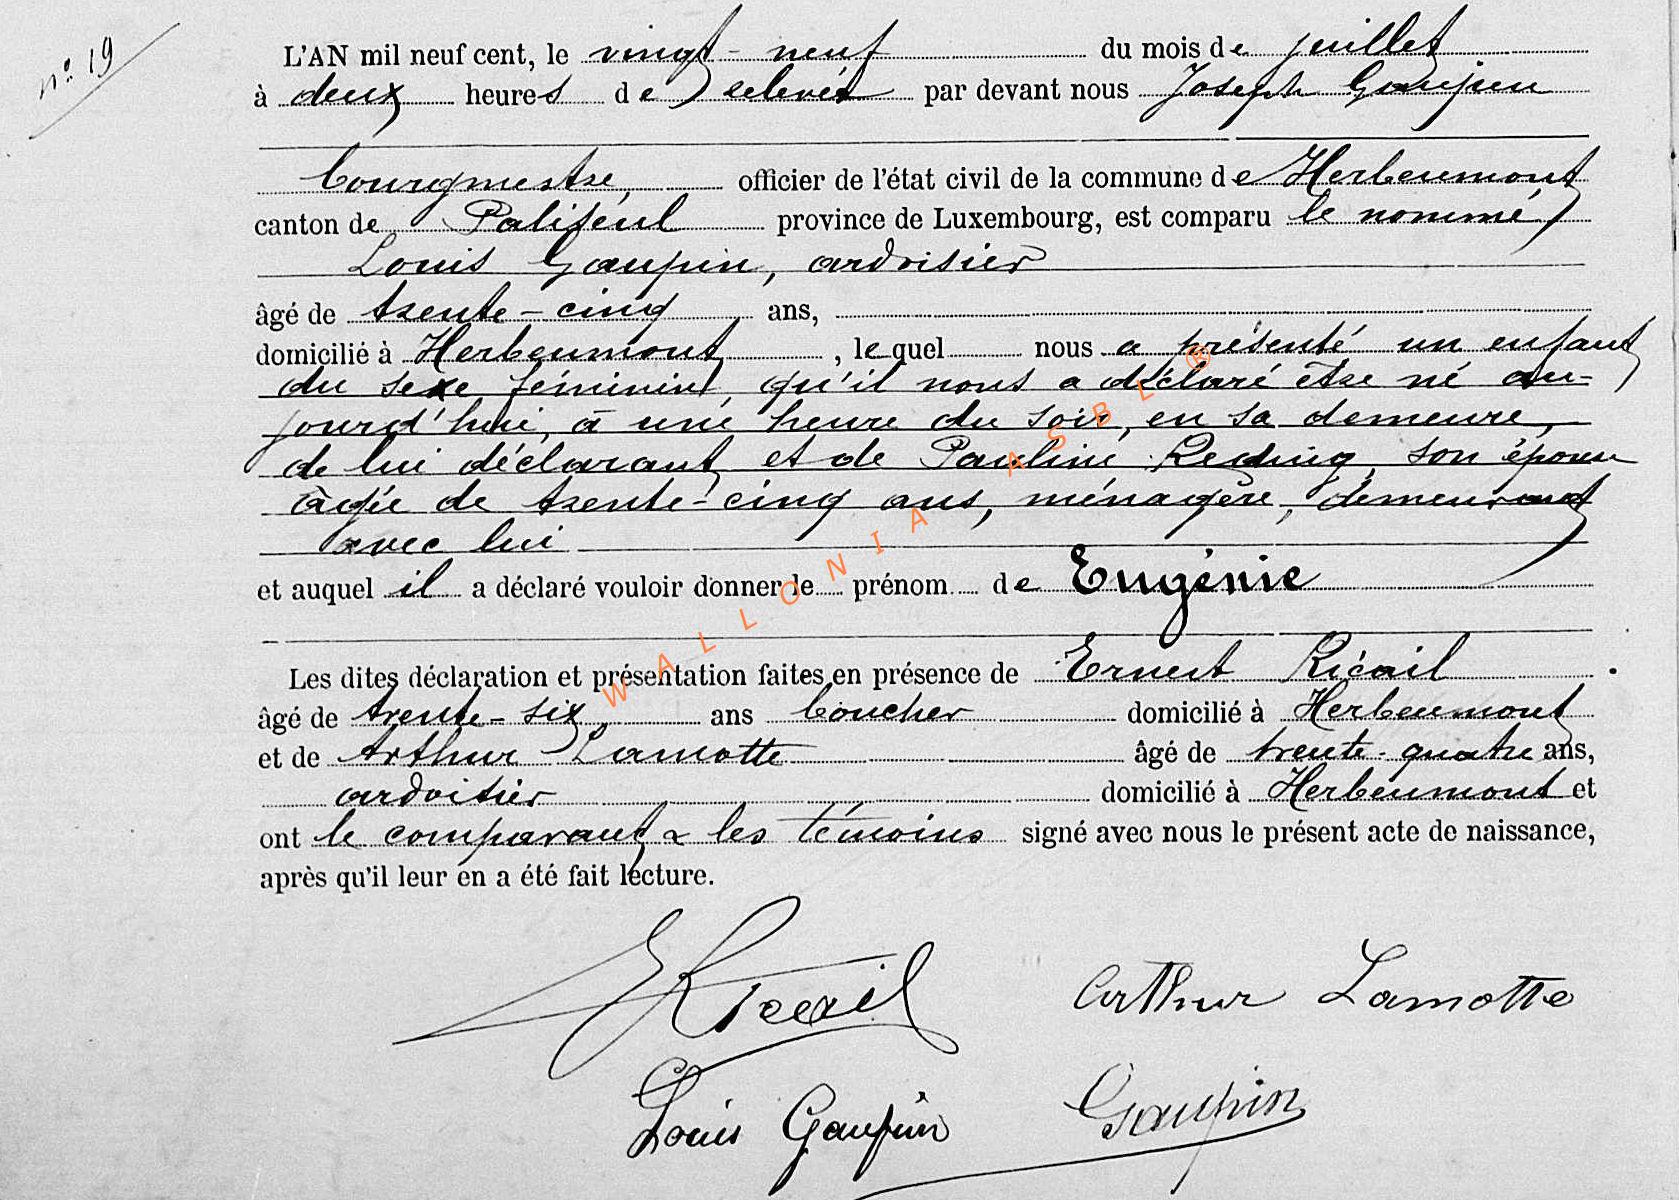 n° 19
L'AN mil neuf cent, le vingt-neuf du mois de juillet
à deux heures de relevée par devant nous Joseph Gaupin
bourgmestre, officier de l'état civil de la commune de Herbeumont
canton de Paliseul province de Luxembourg, est comparu le nommé
Louis Gaupin, ardoisier
âgé de trente-cinq ans,
domicilié à Herbeumont, lequel nous a présenté un enfant
du sexe féminin qu'il nous a déclaré être né au-
jourd'hui, à une heure du soir, en sa demeure,
de lui déclarant et de Pauline Reding, son épouse
âgée de trente-cinq ans, ménagère, demeurant
avec lui
et auquel il a déclaré vouloir donner le prénom de Eugénie
Les dites déclaration et présentation faites en présence de Ernest Ricail
âgé de trente-six ans boucher domicilié à Herbeumont
et de Arthur Lamotte âgé de trente-quatre ans,
ardoisier domicilié à Herbeumont et
ont le comparant & les témoins signé avec nous le présent acte de naissance,
après qu'il leur en a été fait lecture.
ERicail Arthur Lamotte
Louis Gaupin Gaupin
WALLONIA ASBL ®